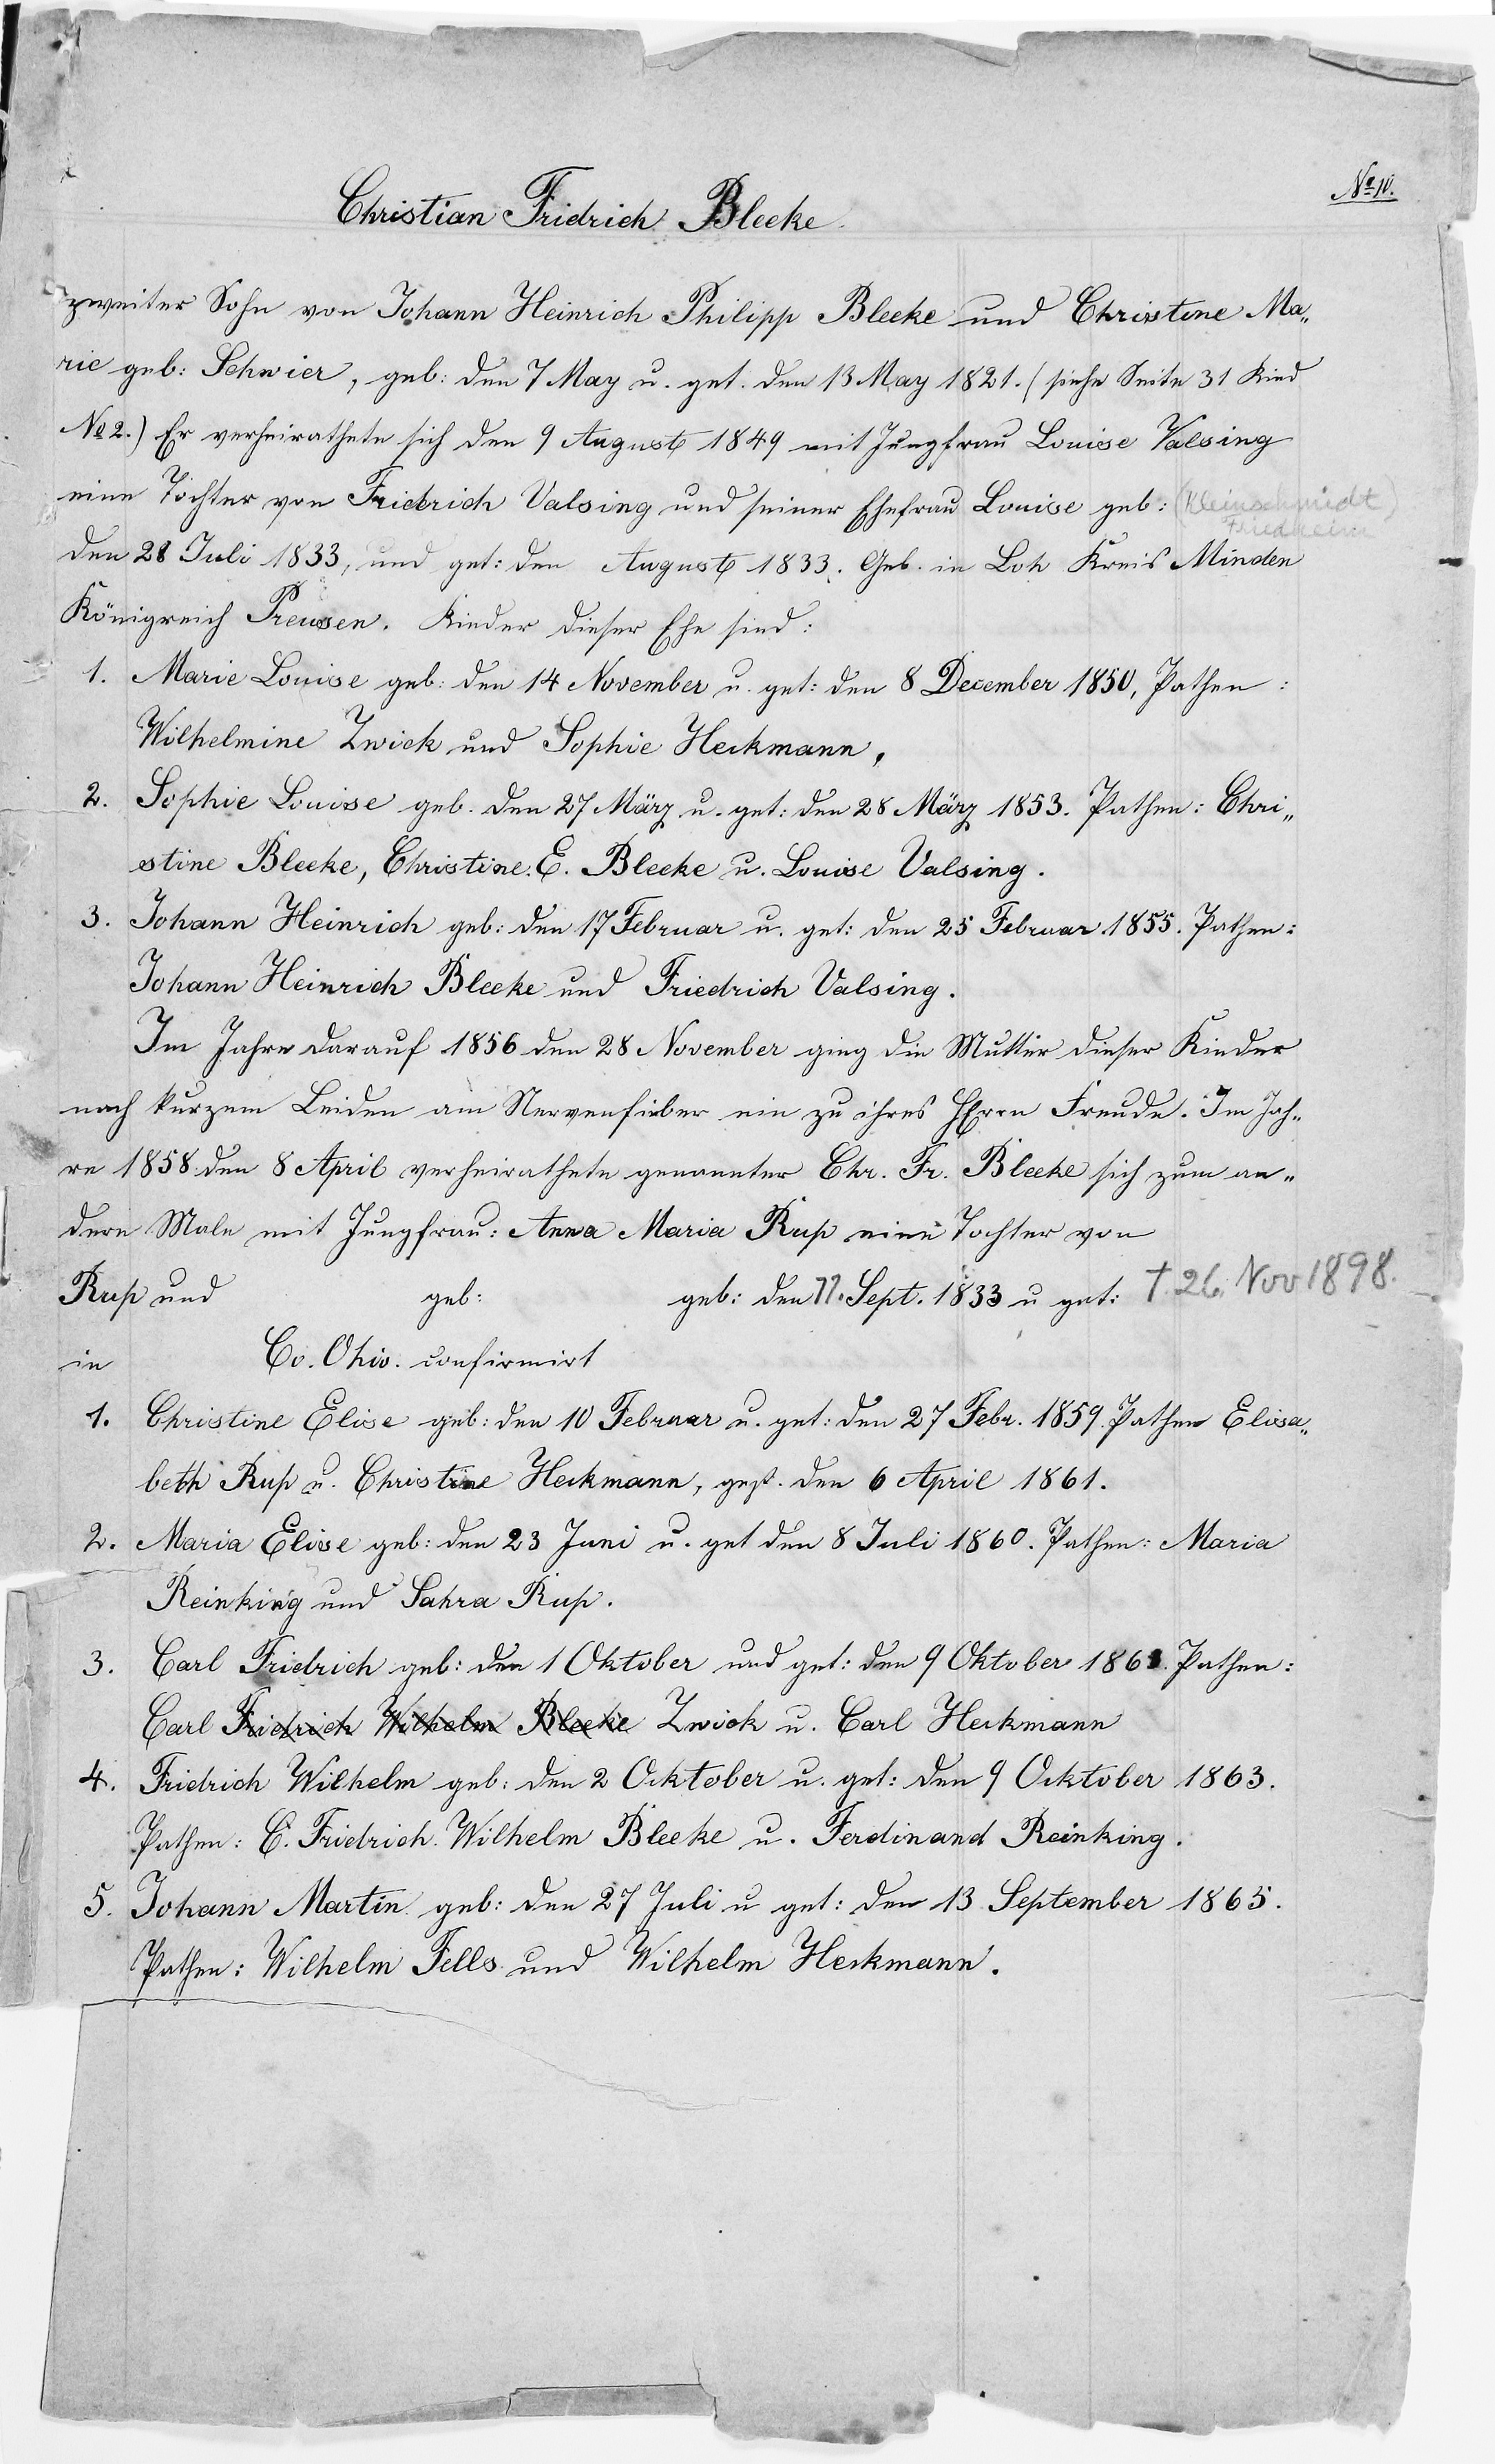 No 10.
Christian Fridrich Bleeke.
zweiter Sohn von Johann Heinrich Philipp Bleeke und Christine Ma„
rie geb: Schwier, geb: den 7 May u. get. den 13 May 1821. (siehe Seite 31 Kind
No 2.) Er verheirathete sich den 9 August 1849 mit Jungfrau Louise Valsing
eine Tochter von Friedrich Valsing und seiner Ehefrau Louise geb: (Kleinschmidt)
Friedheim
den 28 Juli 1833, und get: den August 1833. Geb. in Loh Kreis Minden
Königreich Preusen. Kinder dieser Ehe sind:
1. Marie Louise geb: den 14 November u. get: den 8 December 1850, Pathen:
Wilhelmine Zwick und Sophie Heckmann,
2. Sophie Louise geb. den 27 März u. get: den 28 März 1853. Pathen: Chri„
stine Bleeke, Christine. E. Bleeke u. Louise Valsing.
3. Johann Heinrich geb: den 17 Februar u. get: den 25 Februar 1855. Pathen:
Johann Heinrich Bleeke und Friedrich Valsing.
Im Jahre darauf 1856 den 28 November ging die Mutter dieser Kinder
nach kurzem Leiden am Nervenfieber ein zu ihres HErrn Freude. Im Jah„
re 1858 den 8 April verheirathete genannter Chr. Fr. Bleeke sich zum an„
dern Male mit Jungfrau: Anna Maria Rup eine Tochter von
Rup und geb: geb: den 11. Sept. 1833 u get: † 26. Nov 1898.
in Co. Ohio. confirmirt
1. Christine Elise geb: den 10 Februar u. get: den 27 Febr. 1859. Pathen Elisa„
beth Rup u. Christine Heckmann, gest. den 6 April 1861.
2. Maria Elise geb: den 23 Juni u. get den 8 Juli 1860. Pathen: Maria
Reinking und Sahra Rup.
3. Carl Fridrich geb: den 1 Oktober und get: den 9 Oktober 1861. Pathen:
Carl Fridrich Wilhelm Bleeke Zwick u. Carl Heckmann
4. Fridrich Wilhelm geb: den 2 Ocktober u. get: den 9 Ocktober 1863.
Pathen: C. Fridrich Wilhelm Bleeke u. Ferdinand Reinking.
5. Johann Martin geb: den 27 Juli u get: den 13 September 1865.
Pathen: Wilhelm Fells und Wilhelm Heckmann.